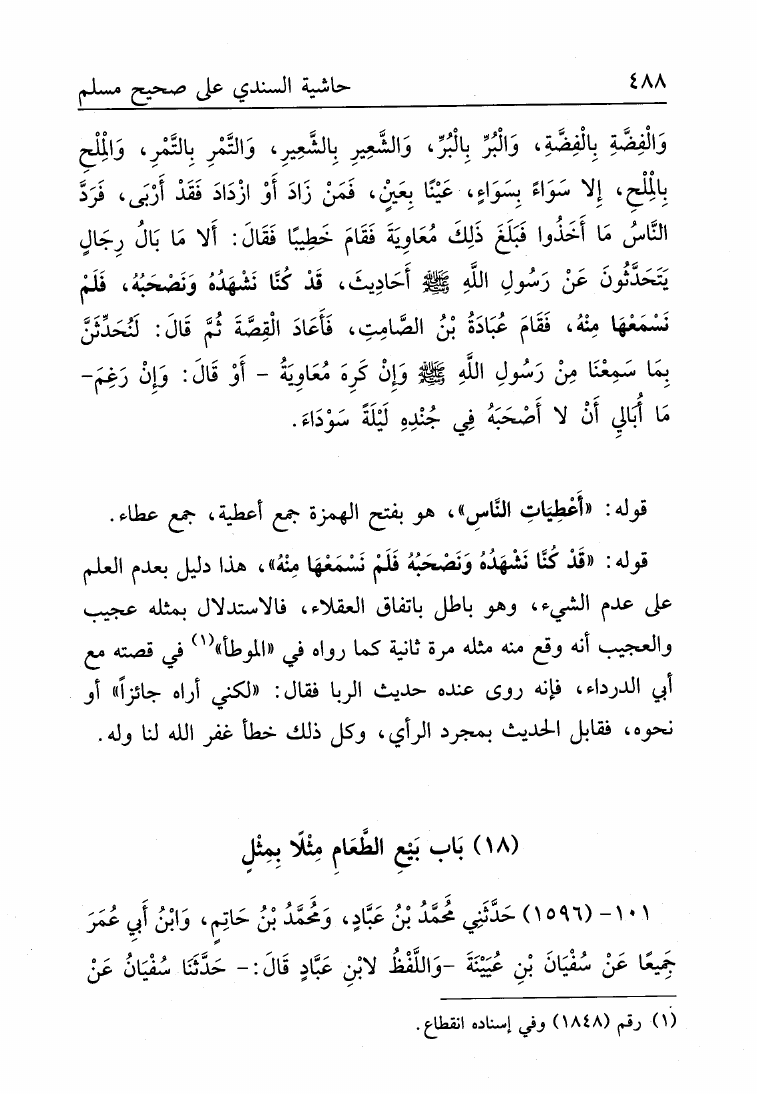 ٤٨٨ حاشية السندي على صحيح مسلم
وَالْفِضَّةِ بِالْفِضَّةِ، وَالْبُرِّ بِالْبُرِّ، وَالشَّعِيرِ بِالشَّعِيرِ، وَالتَّمْرِ بِالتَّمْرِ، وَالْمِلْحِ
بِالْمِلْحِ، إِلا سَوَاءً بِسَوَاءٍ، عَيْنًا بِعَيْنٍ، فَمَنْ زَادَ أَوْ ازْدَادَ فَقَدْ أَرْبَى، فَرَدَّ
النَّاسُ مَا أَخَذُوا فَبَلَغَ ذَلِكَ مُعَاوِيَةَ فَقَامَ خَطِيبًا فَقَالَ: أَلا مَا بَالُ رِجَالٍ
يَتَحَدَّثُونَ عَنْ رَسُولِ اللَّهِ ﷺ أَحَادِيثَ، قَدْ كُنَّا نَشْهَدُهُ وَنَصْحَبُهُ، فَلَمْ
نَسْمَعْهَا مِنْهُ، فَقَامَ عُبَادَةُ بْنُ الصَّامِتِ، فَأَعَادَ الْقِصَّةَ ثُمَّ قَالَ: لَنُحَدِّثَنَّ
بِمَا سَمِعْنَا مِنْ رَسُولِ اللَّهِ ﷺ وَإِنْ كَرِهَ مُعَاوِيَةُ - أَوْ قَالَ: وَإِنْ رَغِمَ-
مَا أُبَالِي أَنْ لا أَصْحَبَهُ فِي جُنْدِهِ لَيْلَةً سَوْدَاءَ.
قوله: «أَعْطِيَاتِ النَّاسِ»، هو بفتح الهمزة جمع أعطية، جمع عطاء.
قوله: «قَدْ كُنَّا نَشْهَدُهُ وَنَصْحَبُهُ فَلَمْ نَسْمَعْهَا مِنْهُ»، هذا دليل بعدم العلم
على عدم الشيء، وهو باطل باتفاق العقلاء، فالاستدلال بمثله عجيب
والعجيب أنه وقع منه مثله مرة ثانية كما رواه في «الموطأ»(١) في قصته مع
أبي الدرداء، فإنه روى عنده حديث الربا فقال: «لكني أراه جائزاً» أو
نحوه، فقابل الحديث بمجرد الرأي، وكل ذلك خطأ غفر الله لنا وله.
(١٨) بَاب بَيْعِ الطَّعَامِ مِثْلًا بِمِثْلٍ
١٠١- (١٥٩٦) حَدَّثَنِي مُحَمَّدُ بْنُ عَبَّادٍ، وَمُحَمَّدُ بْنُ حَاتِمٍ، وَابْنُ أَبِي عُمَرَ
جَمِيعًا عَنْ سُفْيَانَ بْنِ عُيَيْنَةَ -وَاللَّفْظُ لابْنِ عَبَّادٍ قَالَ:- حَدَّثَنَا سُفْيَانُ عَنْ
(١) رقم (١٨٤٨) وفي إسناده انقطاع.